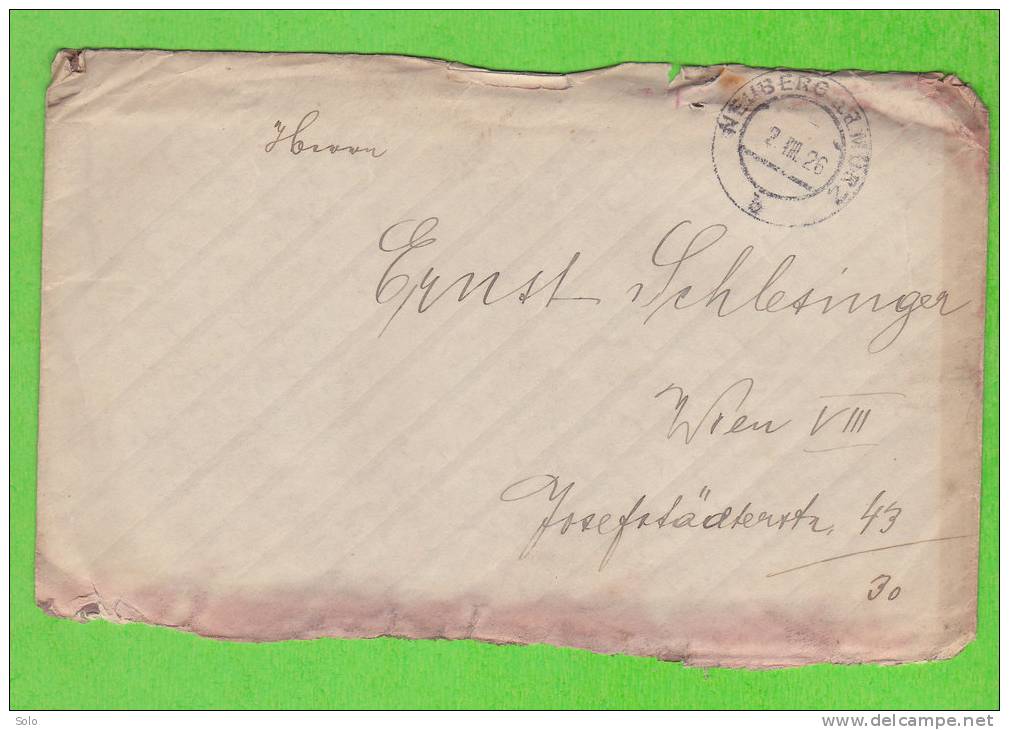 NEUBERG a.d. MÜRZ
2.VIII.26
a
Herrn
Ernst Schlesinger
Wien VIII
Josefstädterstr. 43
30
Solo
www.delcampe.net